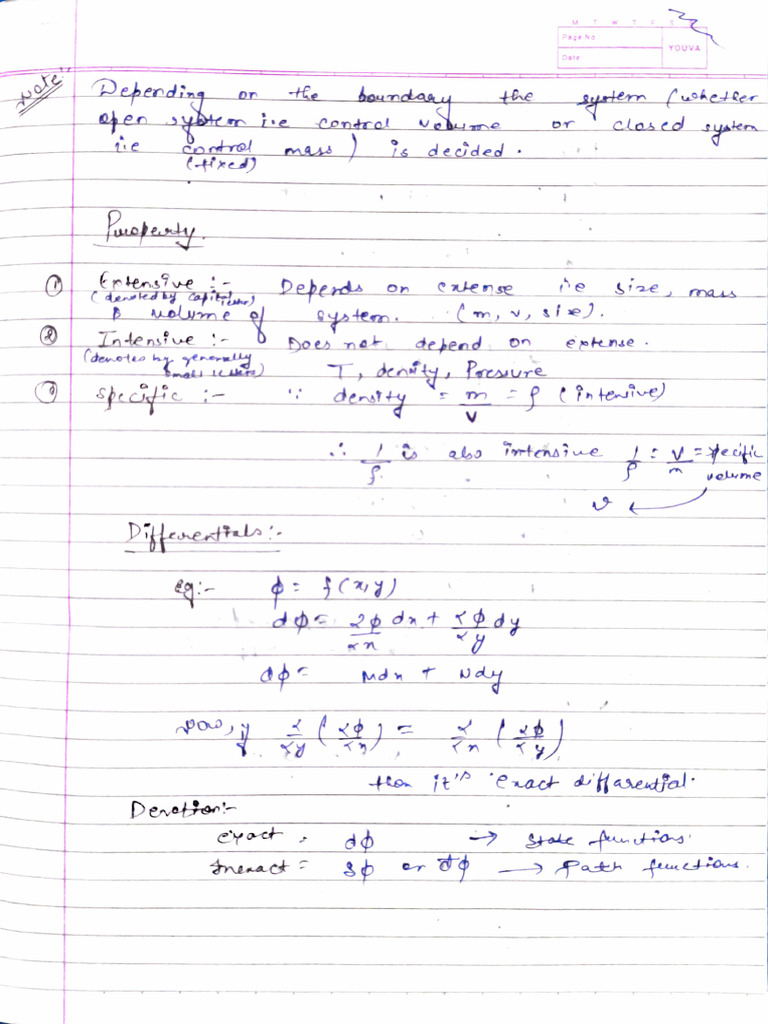 M T W T F S
Page No
YOUVA
Date
Note:-
Depending on the boundary the system (whether
open system i.e control volume or closed system
i.e control mass) is decided.
(fixed)
Property
① Extensive :- Depends on extense i.e size, mass
(denoted by capital letter)
& volume of system. (m, v, size).
② Intensive :- Does not depend on extense.
(denotes by generally small letters)
T, density, Pressure
③ Specific :- ∵ density = m/V = ρ (intensive)
∴ 1/ρ is also intensive 1/ρ = V/m = specific volume
v ←
Differentials:-
eg:- ϕ = f(x,y)
dϕ = ∂ϕ/∂x dx + ∂ϕ/∂y dy
dϕ = Mdx + Ndy
Now, if ∂/∂y (∂ϕ/∂x) = ∂/∂x (∂ϕ/∂y)
then it's exact differential.
Denotion:-
exact = dϕ → State functions.
Inexact = δϕ or đϕ → Path functions.